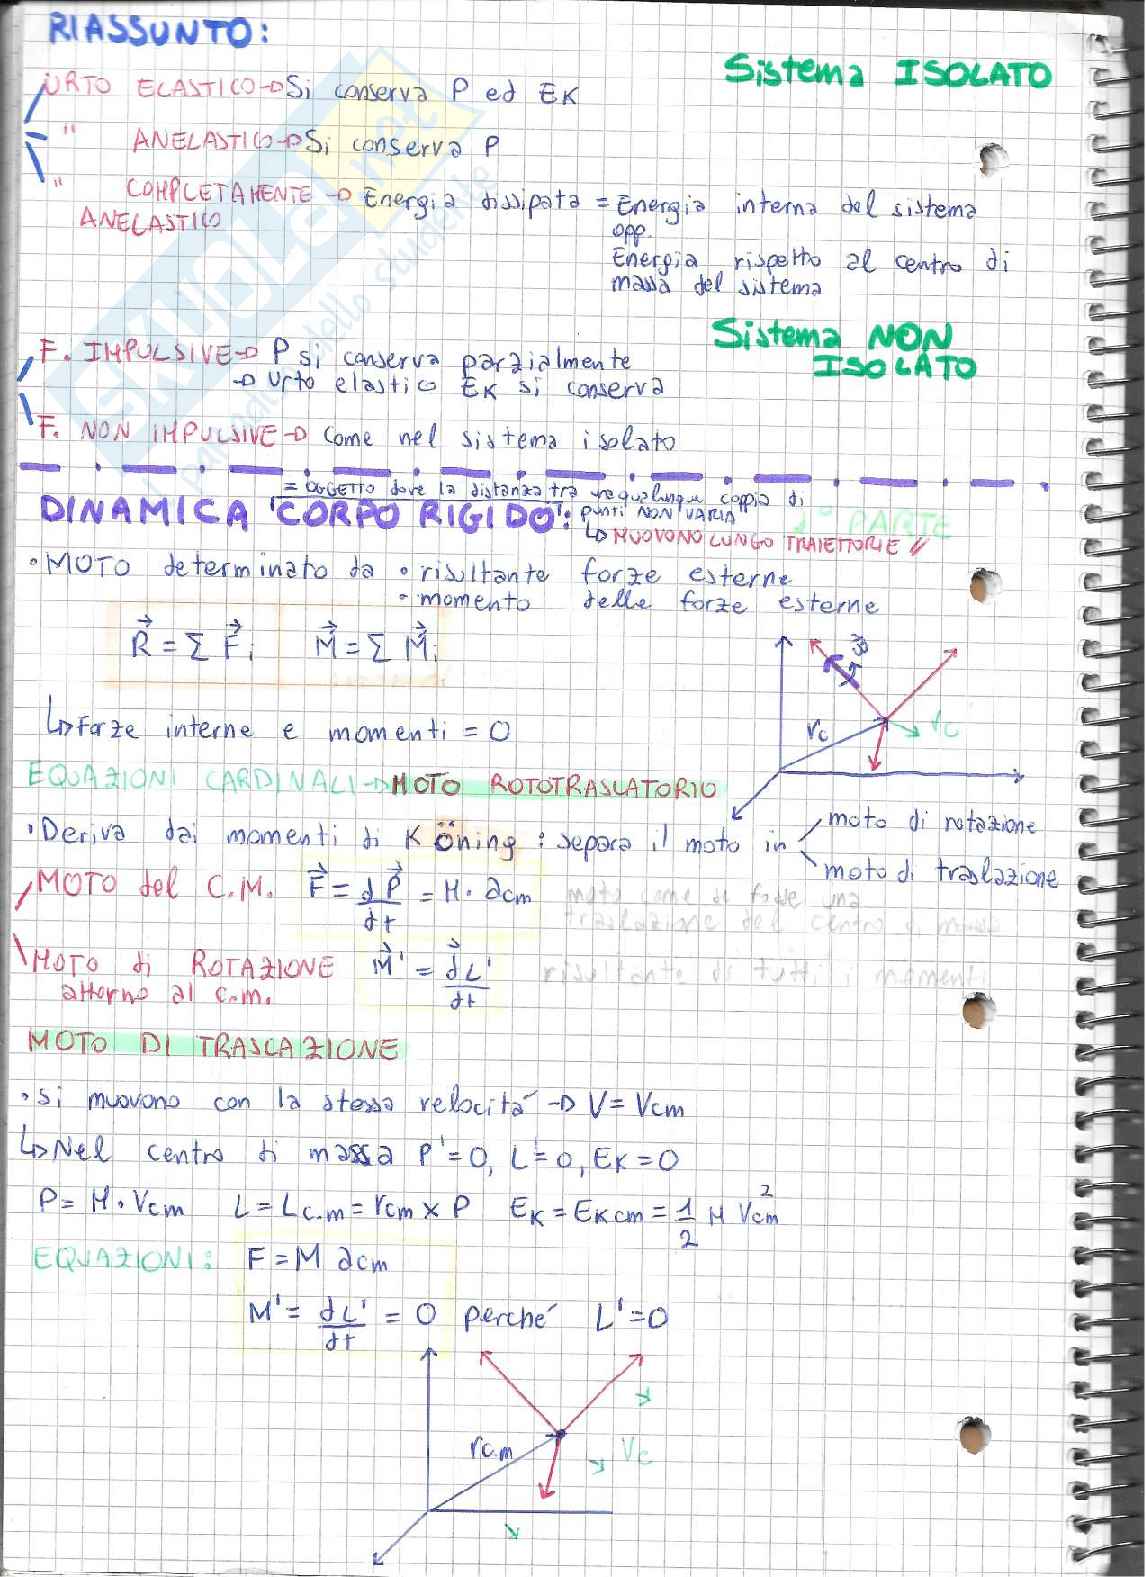 RIASSUNTO:
Sistema ISOLATO
URTO ELASTICO → Si conserva P ed EK
" ANELASTICO → Si conserva P
" COMPLETAMENTE → Energia dissipata = Energia interna del sistema
ANELASTICO
opp.
Energia rispetto al centro di
massa del sistema
Sistema NON
ISOLATO
F. IMPULSIVE → P si conserva parzialmente
→ urto elastico EK si conserva
F. NON IMPULSIVE → Come nel sistema isolato
= OGGETTO dove la distanza tra una qualunque coppia di
DINAMICA "CORPO RIGIDO": punti NON VARIA
1° PARTE
↳ MUOVONO LUNGO TRAIETTORIE //
• MOTO determinato da • risultante forze esterne
• momento delle forze esterne
R = Σ Fi M = Σ Mi
↳ Forze interne e momenti = 0
rc
vc
EQUAZIONI CARDINALI → MOTO ROTOTRASLATORIO
• Deriva dai momenti di Köning : separa il moto in
moto di rotazione
moto di traslazione
MOTO del C.M. F = dP/dt = M · acm
MOTO di ROTAZIONE M' = dL'/dt
attorno al c.m.
MOTO DI TRASLAZIONE
• Si muovono con la stessa velocità → V = Vcm
↳ Nel centro di massa P'=0, L'=0, EK=0
P = M · Vcm L = Lc.m = rcm x P EK = EKcm = 1/2 M Vcm²
EQUAZIONI: F = M acm
M' = dL'/dt = 0 perché L'=0
rc.m
Vc